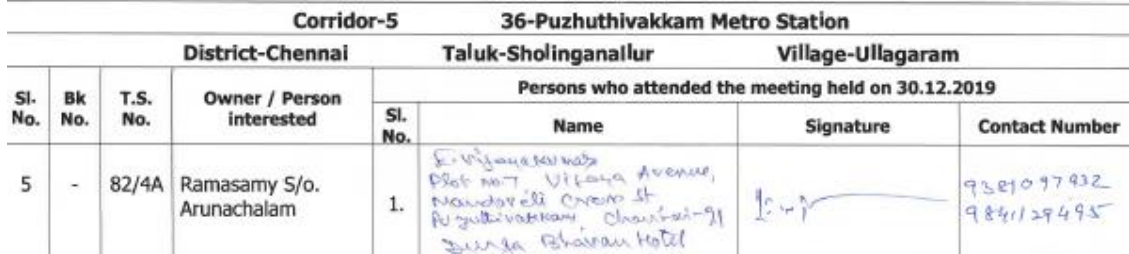 Corridor-5 36-Puzhuthivakkam Metro Station
District-Chennai Taluk-Sholinganallur Village-Ullagaram
Sl. No. Bk No. T.S. No. Owner / Person interested Persons who attended the meeting held on 30.12.2019
Sl. No. Name Signature Contact Number
5 - 82/4A Ramasamy S/o. Arunachalam 1.
E. Vijayakumar
Plot No.7 Vijaya Avenue,
Mandaveli Cross St
Puzuthivakkam Chennai-91
Durga Bhavan Hotel
9381097932
9841129495